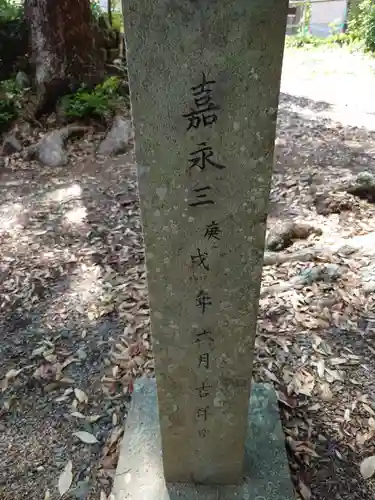 嘉永三庚戌年六月吉祥日